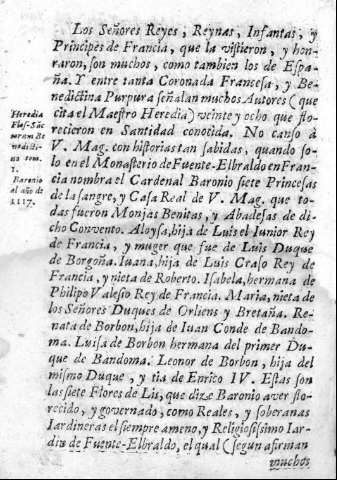 Los Señores Reyes, Reynas, Infantas, y
Principes de Francia, que la vistieron, y hon-
raron, son muchos, como tambien los de Espa-
ña. Y entre tanta Coronada Francesa, y Be-
nedictina Purpura señalan muchos Autores (que
cita el Maestro Heredia) veinte y ocho que flo-
recieron en Santidad conocida. No canso à
V. Mag. con historias tan sabidas, quando so-
lo en el Monasterio de Fuente-Elbraldo en Fran-
cia nombra el Cardenal Baronio siete Princesas
de la sangre, y Casa Real de V. Mag. que to-
das fueron Monjas Benitas, y Abadesas de di-
cho Convento. Aloysa, hija de Luis el Iunior Rey
de Francia, y muger que fue de Luis Duque
de Borgoña. Iuana, hija de Luis Craso Rey de
Francia, y nieta de Roberto. Isabela, hermana de
Philipo Valesio Rey de Francia. Maria, nieta de
los Señores Duques de Orliens y Bretaña. Re-
nata de Borbon, hija de Iuan Conde de Bando-
ma. Luisa de Borbon hermana del primer Du-
que de Bandoma. Leonor de Borbon, hija del
mismo Duque, y tia de Enrico IV. Estas son
las siete Flores de Lis, que dize Baronio aver flo-
recido, y governado, como Reales, y soberanas
Iardineras el siempre ameno, y Religiosissimo Iar-
din de Fuente-Elbraldo, el qual (segun afirman
muchos
Heredia
Flos-Sāc
torum Be
nedicti-
no tom.
1.
Baronio
al año de
1117.